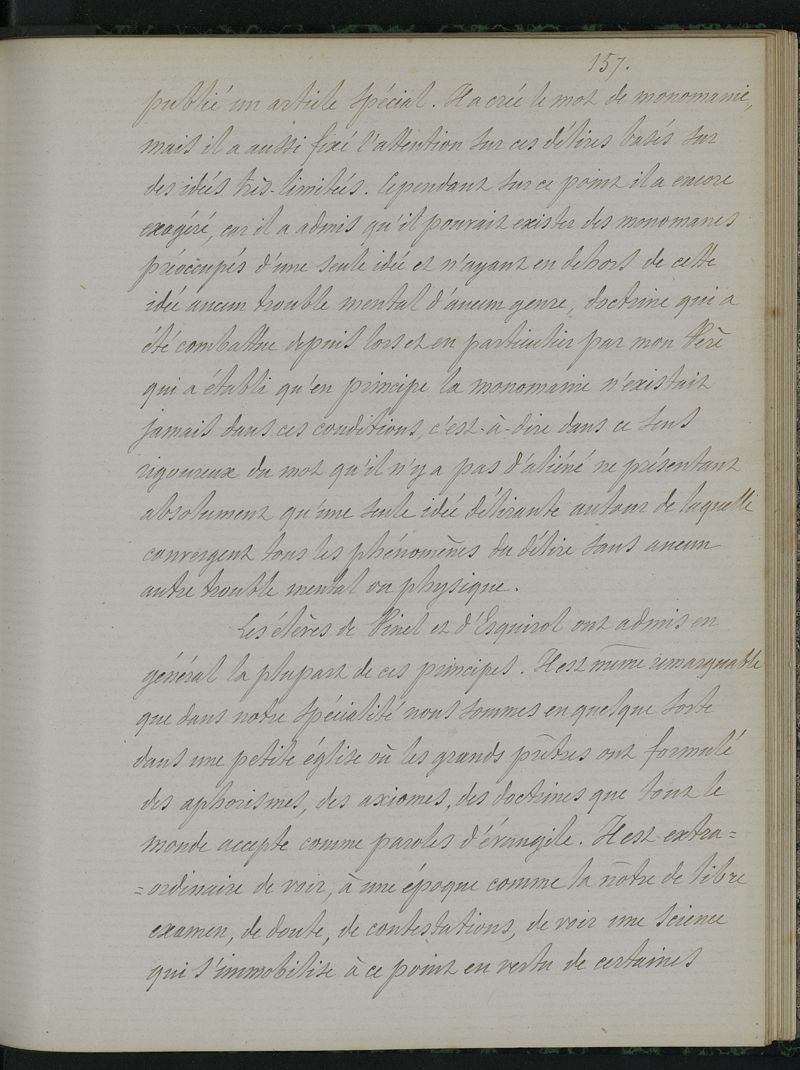 157.
publié un article spécial. Il a créé le mot de monomanie,
mais il a aussi fixé l'attention sur ces délires basés sur
des idées très-limitées. Cependant sur ce point il a encore
exagéré, car il a admis qu'il pouvait exister des monomanes
préoccupés d'une seule idée et n'ayant en dehors de cette
idée aucun trouble mental d'aucun genre, doctrine qui a
été combattue depuis lors et en particulier par mon Père
qui a établi qu'en principe la monomanie n'existait
jamais dans ces conditions, c'est-à-dire dans ce sens
rigoureux du mot qu'il n'y a pas d'aliéné ne présentant
absolument qu'une seule idée délirante autour de laquelle
convergent tous les phénomènes du délire sans aucun
autre trouble mental ou physique.
Les élèves de Pinel et d'Esquirol ont admis en
général la plupart de ces principes. Il est même remarquable
que dans notre spécialité nous sommes en quelque sorte
dans une petite église où les grands prêtres ont formulé
des aphorismes, des axiomes, des doctrines que tout le
monde accepte comme paroles d'évangile. Il est extra=
=ordinaire de voir, à une époque comme la nôtre de libre
examen, de doute, de contestations, de voir une science
qui s'immobilise à ce point en vertu de certaines